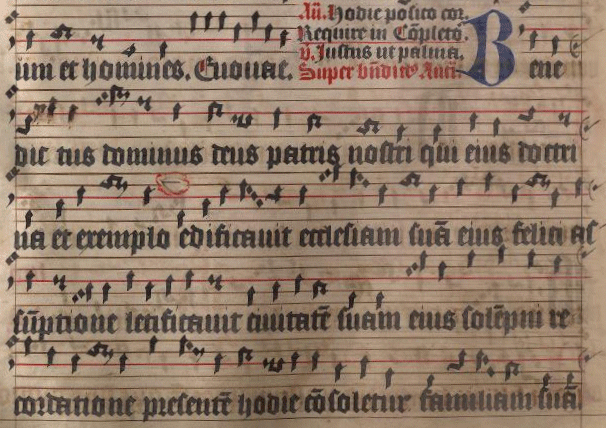 Añ. Hodie posito cor.
Require in Cōpleto.
v̄. Iustus ut palma.
um et homines. Euouae. Super bn̄dictꝰ Antī. Bene
dic tus dominus deus patris nostri qui eius doctri
na et exemplo edificauit ecclesiam suā eius felici as
sūptione letificauit ciuitatē suam eius solēpni re
cordatione presentē hodie cōsoletur familiam suā.